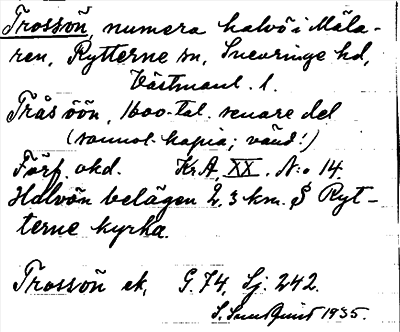 Trossön, numera halvö i Mäla-
ren, Rytterne sn, Snevringe hd,
Västmanl. l.
Trås öön, 1600-tal. senare del
(sannol. kopia; vänd!)
Förf. okd. KrA, XX. N:o 14.
Halvön belägen 2,3 km. S Ryt-
terne kyrka.
Trossön ek, G.74, Sj. 242.
S. Sundquist 1935.